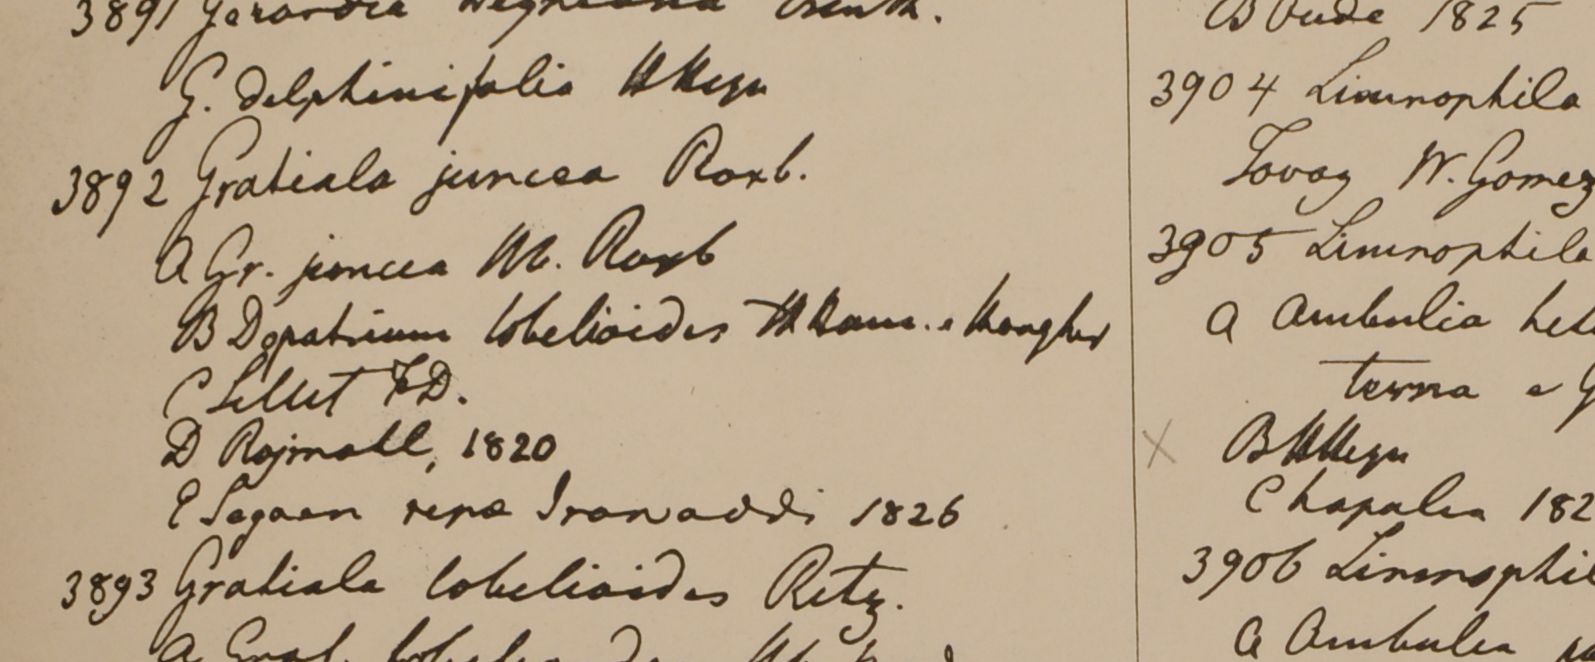 3891 Gerardia Benth.
G. delphinifolia HHeyn
3892 Gratiola juncea Roxb.
a Gr. juncea Hb. Roxb
B Dopatrium lobelioides HHam. e Monghir
C Sillet FD.
D Rajmahl, 1820
E Segaen ripæ Irawaddi 1826
3893 Gratiola lobelioides Retz.
a Grat. Hb.
B Oude 1825
3904 Limnophila
Tavoy W. Gomez
3905 Limnophila
a Ambulia
terna e
B HHeyn
C hapalea 182
3906 Limnophil
a Ambulia